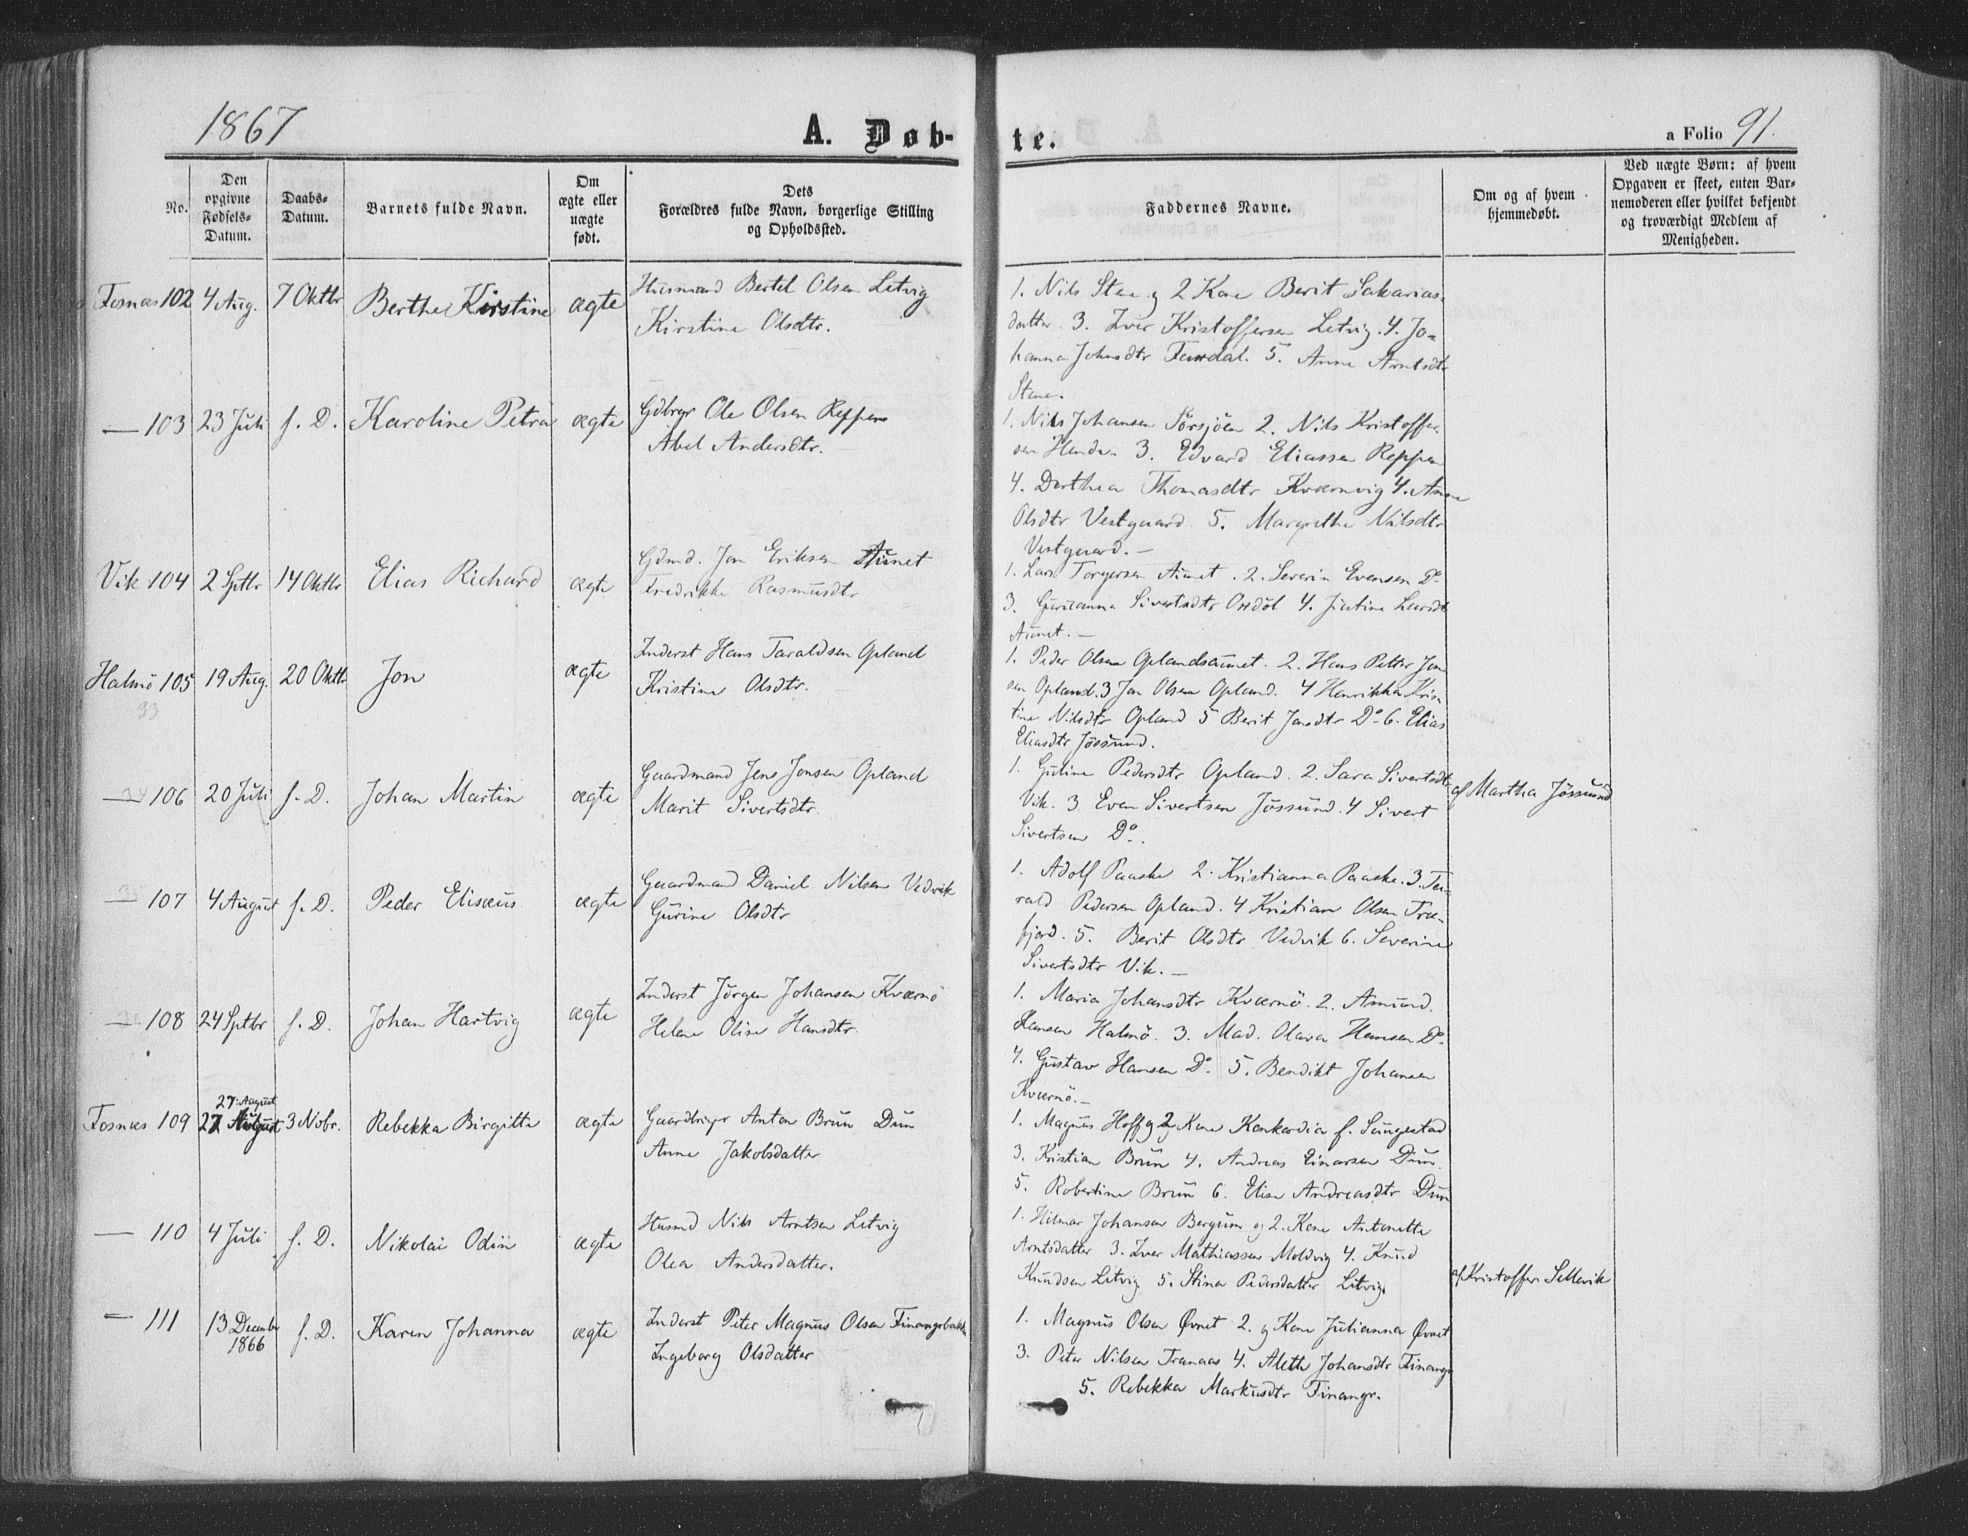 1867
A. Døb-
te.
a Folio 91.
No.
Den opgivne Fødsels-Datum.
Daabs-Datum.
Barnets fulde Navn.
Om ægte eller uægte født.
Dets Forældres fulde Navn, borgerlige Stilling og Opholdssted.
Faddernes Navne.
Om og af hvem hjemmedøbt.
Ved uægte Børn: af hvem Opgaven er skeet, enten Barnemoderen eller hvilket bekjendt og troværdigt Medlem af Menigheden.
Fosnæs 102 4 Aug. 7 Oktbr Berthe Kirstine ægte
Husmand Bertel Olsen Letvig
Kirstine Olsdtr.
1. Nils Stene og 2 Kone Berit Sakarias-
datter. 3. Iver Kristoffersen Letvig. 4. Jo-
hanna Johnsdtr Faurdal. 5. Anne Arntsdtr
Stene.
— 103 23 Juli f. D. Karoline Petra ægte
Gdbrgr Ole Olsen Reppen
Abel Andersdtr.
1. Nils Johansen Sörsjöen 2. Nils Kristoffer-
sen 3. Edvard Eliassen Reppen
4. Dorthea Thomasdtr Kværnvig 4. Anne
Olsdtr Vestgaard. 5. Margrethe Nilsdtr
Vestgaard. —
Vik 104 2 Sptbr 14 Oktbr Elias Richard ægte
Gdmd. Jon Eriksen Aunet
Fredrikke Rasmusdtr
1. Lars Torgersen Aunet. 2. Severin Evensen Do
3. Sivertsdtr 4. Justine Larsdtr
Aunet. —
Halmö 105 19 Aug. 20 Oktbr Jon ægte
33
Inderst Hans Taraldsen Opland
Kristine Olsdtr.
1. Peder Olsen Oplandsaunet. 2. Hans Petter Jon-
sen Opland. 3 Jon Olsen Opland. 4 Henrikka Kris-
tine Nilsdtr Opland 5 Berit Jonsdtr Do 6. Elias
Eliasdtr Jössund.
— 106 20 Juli f. D. Johan Martin ægte
Gaardmand Jens Jonsen Opland
Marit Sivertsdtr.
1. Guline Pedersdtr Opland. 2. Sara Sivertsdtr
Vik. 3 Even Sivertsen Jössund. 4 Sivert
Sivertsen Do.
af Martha Jössund
— 107 4 August f. D. Peder Elisæus ægte
Gaardmand Daniel Nilsen Vedvik
Gurine Olsdtr
1. Adolf Paaske 2. Kristianna Paaske. 3. Ta-
rald Pedersen Opland. 4 Kristian Olsen Træ-
fjord. 5. Berit Olsdtr Vedvik 6. Severine
Sivertsdtr Vik. —
— 108 24 Sptbr f. D. Johan Hartvig ægte
Inderst Jörgen Johansen Kværnö
Helene Oline Hansdtr.
1. Maria Johansdtr Kværnö. 2. Amund
Hansen Halmö. 3. Mad. Olava Hansen Do.
4. Gustav Hansen Do. 5. Bendikt Johansen
Kværnö. —
27. August
Fosnæs 109 27 August 3 Nobr. Rebekka Birgitte ægte
Gaardbrgr Anton Brun Dun
Anne Jakobsdatter
1. Magnus Hoff og 2 Kone Konkordia f. Sungestad
3. Kristian Brun 4. Andreas Einarsen Dun.
5. Robertine Brun 6. Elise Andreasdtr Dun
— 110 4 Juli f. D. Nikolai Odin ægte
Husmd Nils Arntsen Letvig
Olea Andersdatter.
1. Hilmar Johansen Bergum og 2. Kone Antonette
Arntsdatter 3. Iver Mathiassen Moldvig 4. Knud
Knudsen Letvig 5. Stina Pedersdatter Letvig.
af Kristoffer Sellevik
— 111 13 Decembr f. D. Karen Johanna ægte
1866
Inderst Peter Magnus Olsen Finangsbakk.
Ingeborg Olsdatter
1. Magnus Olsen Øvnet 2. og Kone Julianna Øvnet
3. Peter Nilsen Tranaas 4. Aleth Johansdtr Finangr
5. Rebekka Markusdtr Finangr.